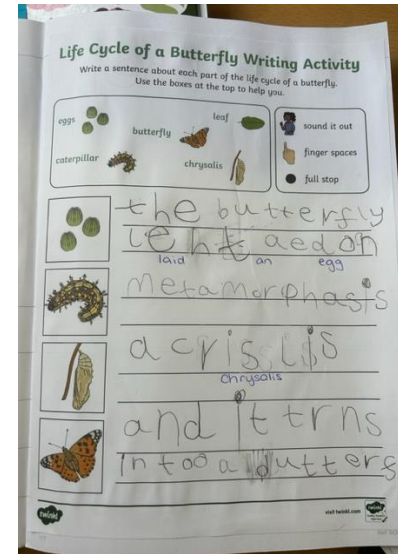 Life Cycle of a Butterfly Writing Activity
Write a sentence about each part of the life cycle of a butterfly.
Use the boxes at the top to help you.
eggs
leaf
butterfly
caterpillar
chrysalis
sound it out
finger spaces
full stop
the butterfly
laid an egg
metamorphasis
a crisslis
chrysalis
and it trns
In too a butterf
twinkl
visit twinkl.com
twinkl